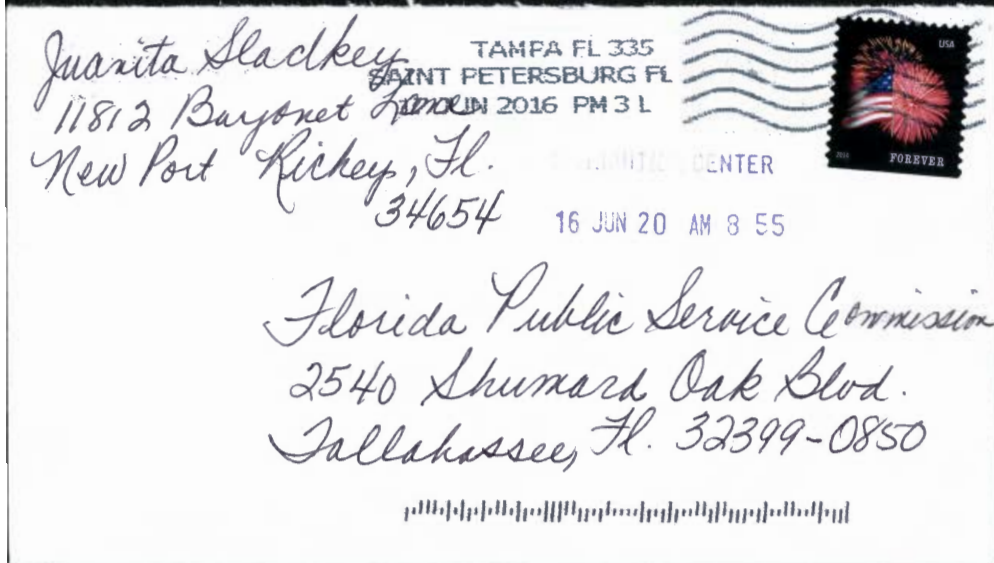 Juanita Sladkey
11812 Bayonet Lane
New Port Richey, Fl.
34654
TAMPA FL 335
SAINT PETERSBURG FL
JUN 2016 PM 3 L
USA
FOREVER
CENTER
16 JUN 20 AM 8 55
Florida Public Service Commission
2540 Shumard Oak Blvd.
Tallahassee, Fl. 32399-0850